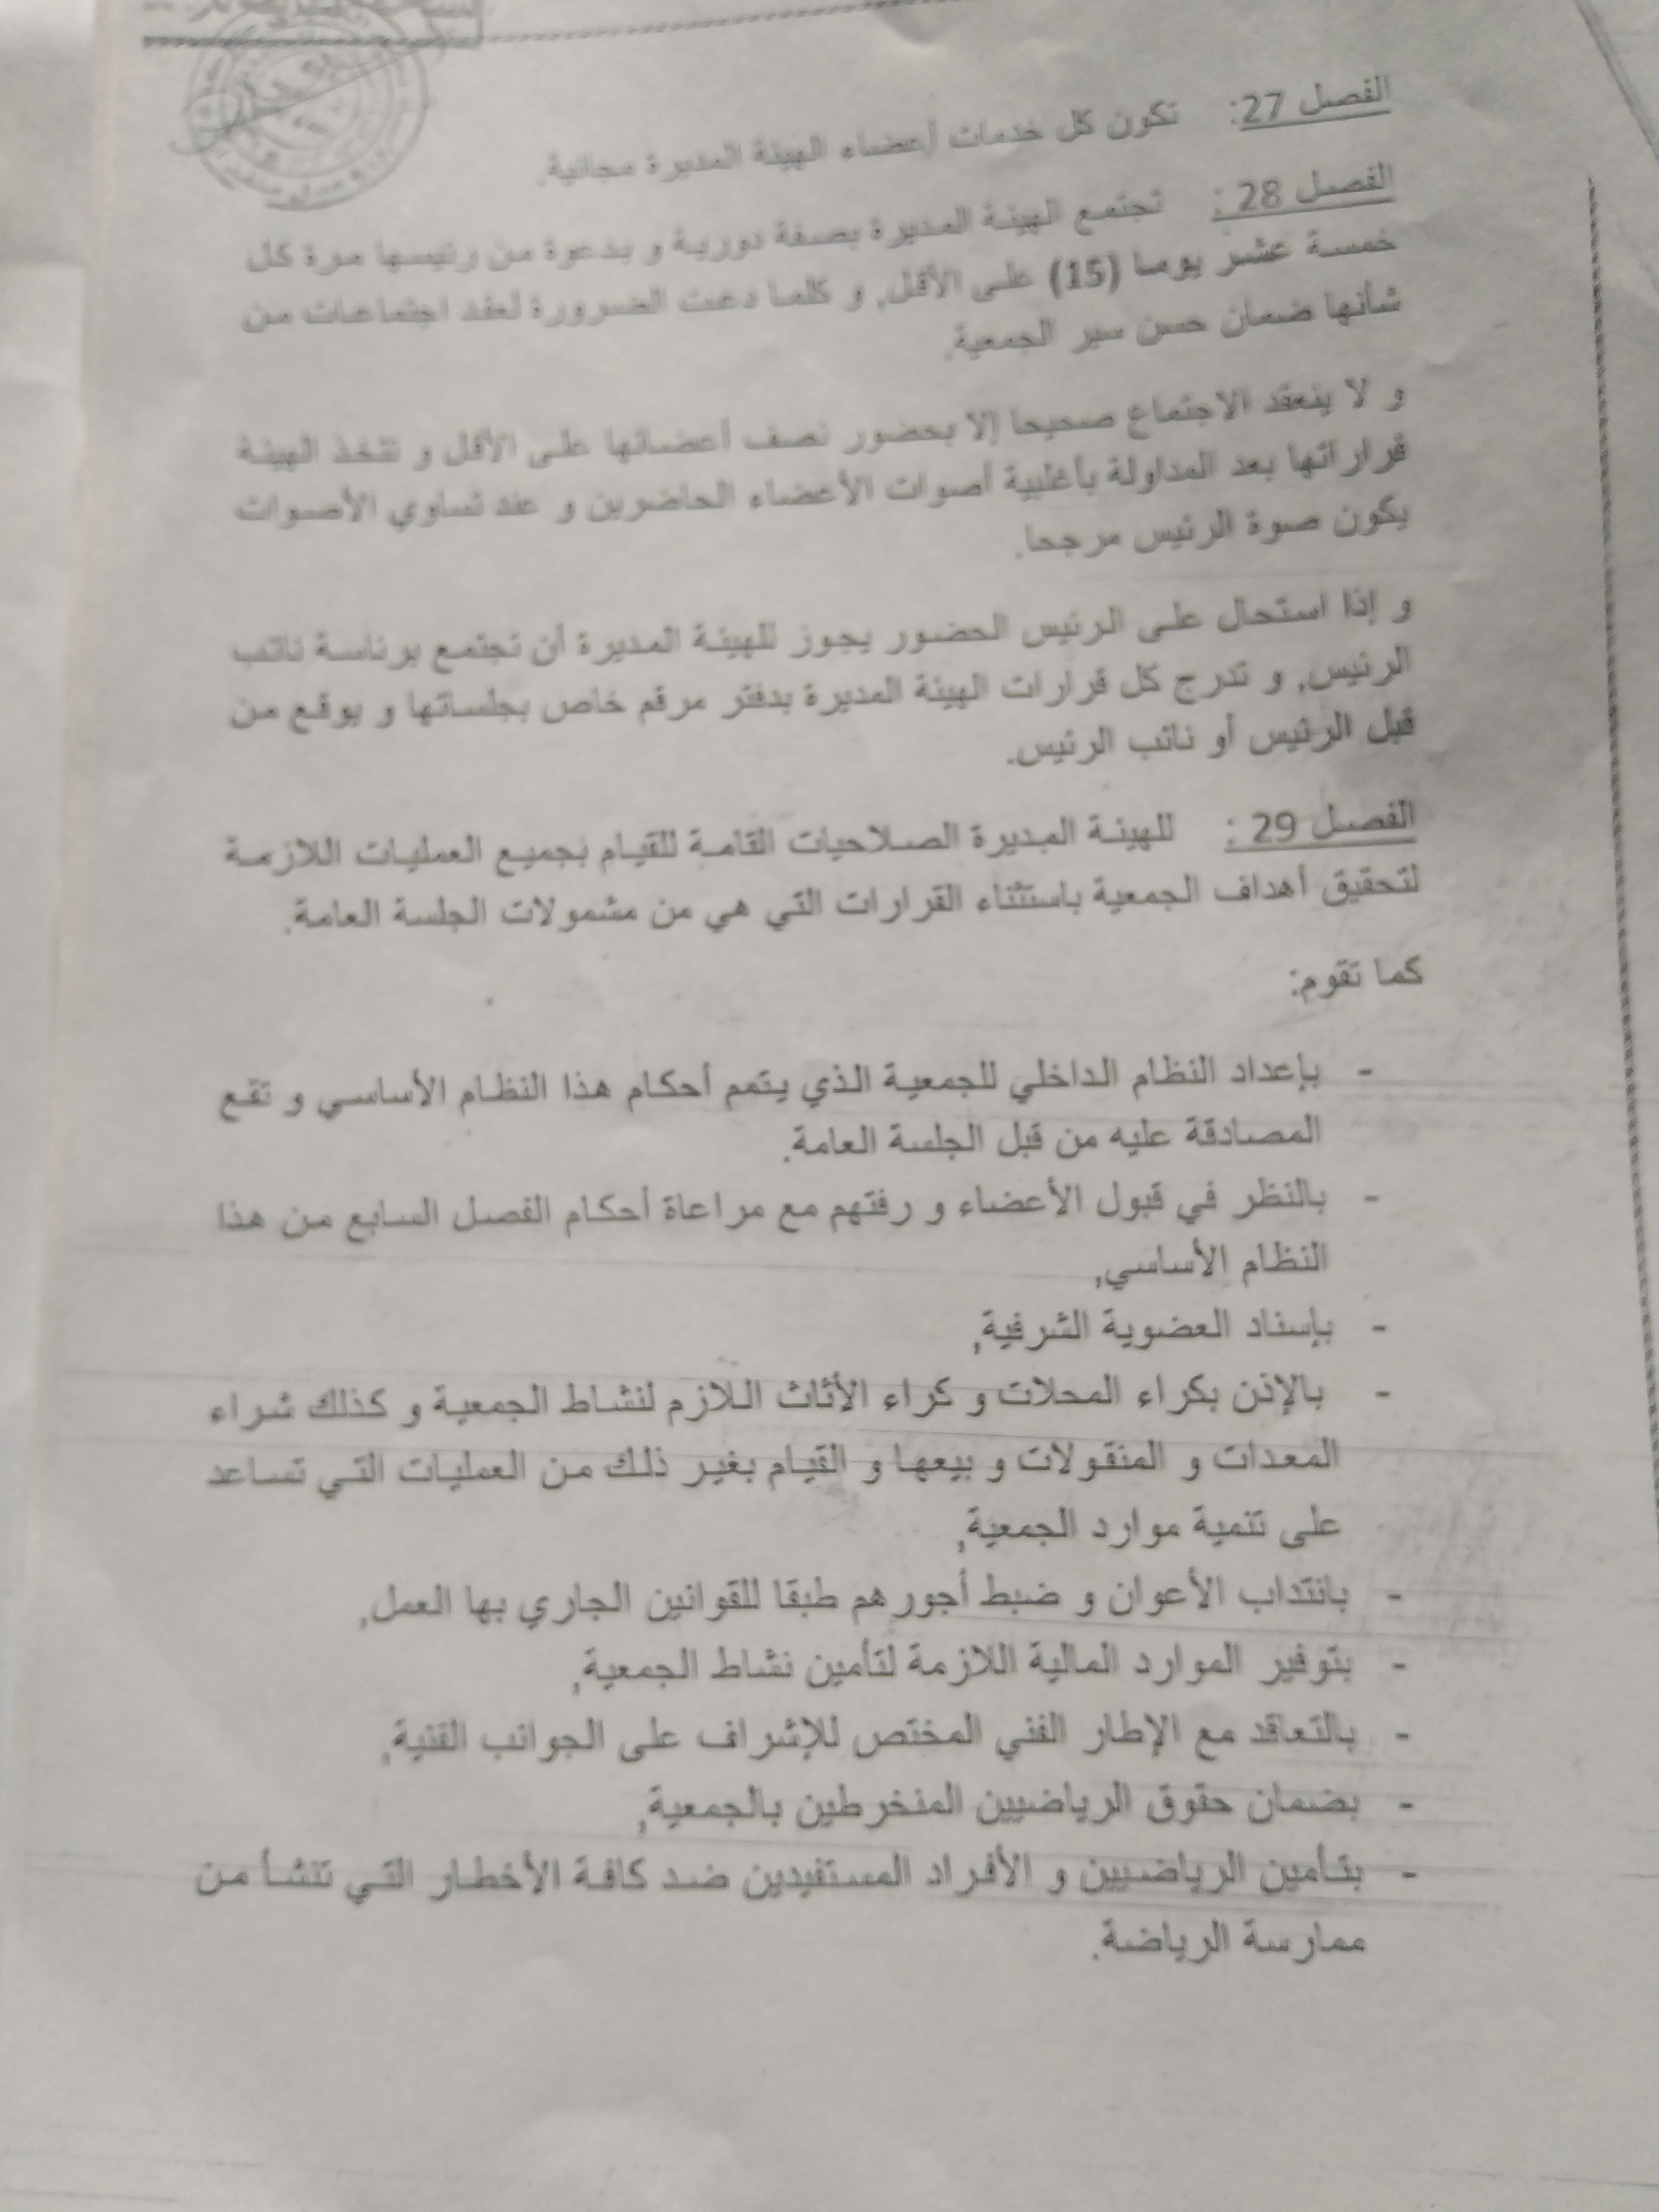 الفصل 27: تكون كل خدمات أعضاء الهيئة المديرة مجانية.
الفصل 28 : تجتمع الهيئة المديرة بصفة دورية و بدعوة من رئيسها مرة كل
خمسة عشر يوما (15) على الأقل, و كلما دعت الضرورة لعقد اجتماعات من
شأنها ضمان حسن سير الجمعية.
و لا ينعقد الاجتماع صحيحا إلا بحضور نصف أعضائها على الأقل و تتخذ الهيئة
قراراتها بعد المداولة بأغلبية أصوات الأعضاء الحاضرين و عند تساوي الأصوات
يكون صوة الرئيس مرجحا.
و إذا استحال على الرئيس الحضور يجوز للهيئة المديرة أن تجتمع برئاسة نائب
الرئيس, و تدرج كل قرارات الهيئة المديرة بدفتر مرقم خاص بجلساتها و يوقع من
قبل الرئيس أو نائب الرئيس.
الفصل 29 : للهيئة المديرة الصلاحيات القامة للقيام بجميع العمليات اللازمة
لتحقيق أهداف الجمعية باستثناء القرارات التي هي من مشمولات الجلسة العامة.
كما تقوم:
- بإعداد النظام الداخلي للجمعية الذي يتمم أحكام هذا النظام الأساسي و تقع
المصادقة عليه من قبل الجلسة العامة.
- بالنظر في قبول الأعضاء و رفتهم مع مراعاة أحكام الفصل السابع من هذا
النظام الأساسي,
- بإسناد العضوية الشرفية,
- بالإذن بكراء المحلات و كراء الأثاث اللازم لنشاط الجمعية و كذلك شراء
المعدات و المنقولات و بيعها و القيام بغير ذلك من العمليات التي تساعد
على تنمية موارد الجمعية,
- بانتداب الأعوان و ضبط أجورهم طبقا للقوانين الجاري بها العمل,
- بتوفير الموارد المالية اللازمة لتأمين نشاط الجمعية,
- بالتعاقد مع الإطار الفني المختص للإشراف على الجوانب الفنية,
- بضمان حقوق الرياضيين المنخرطين بالجمعية,
- بتأمين الرياضيين و الأفراد المستفيدين ضد كافة الأخطار التي تنشأ من
ممارسة الرياضة.